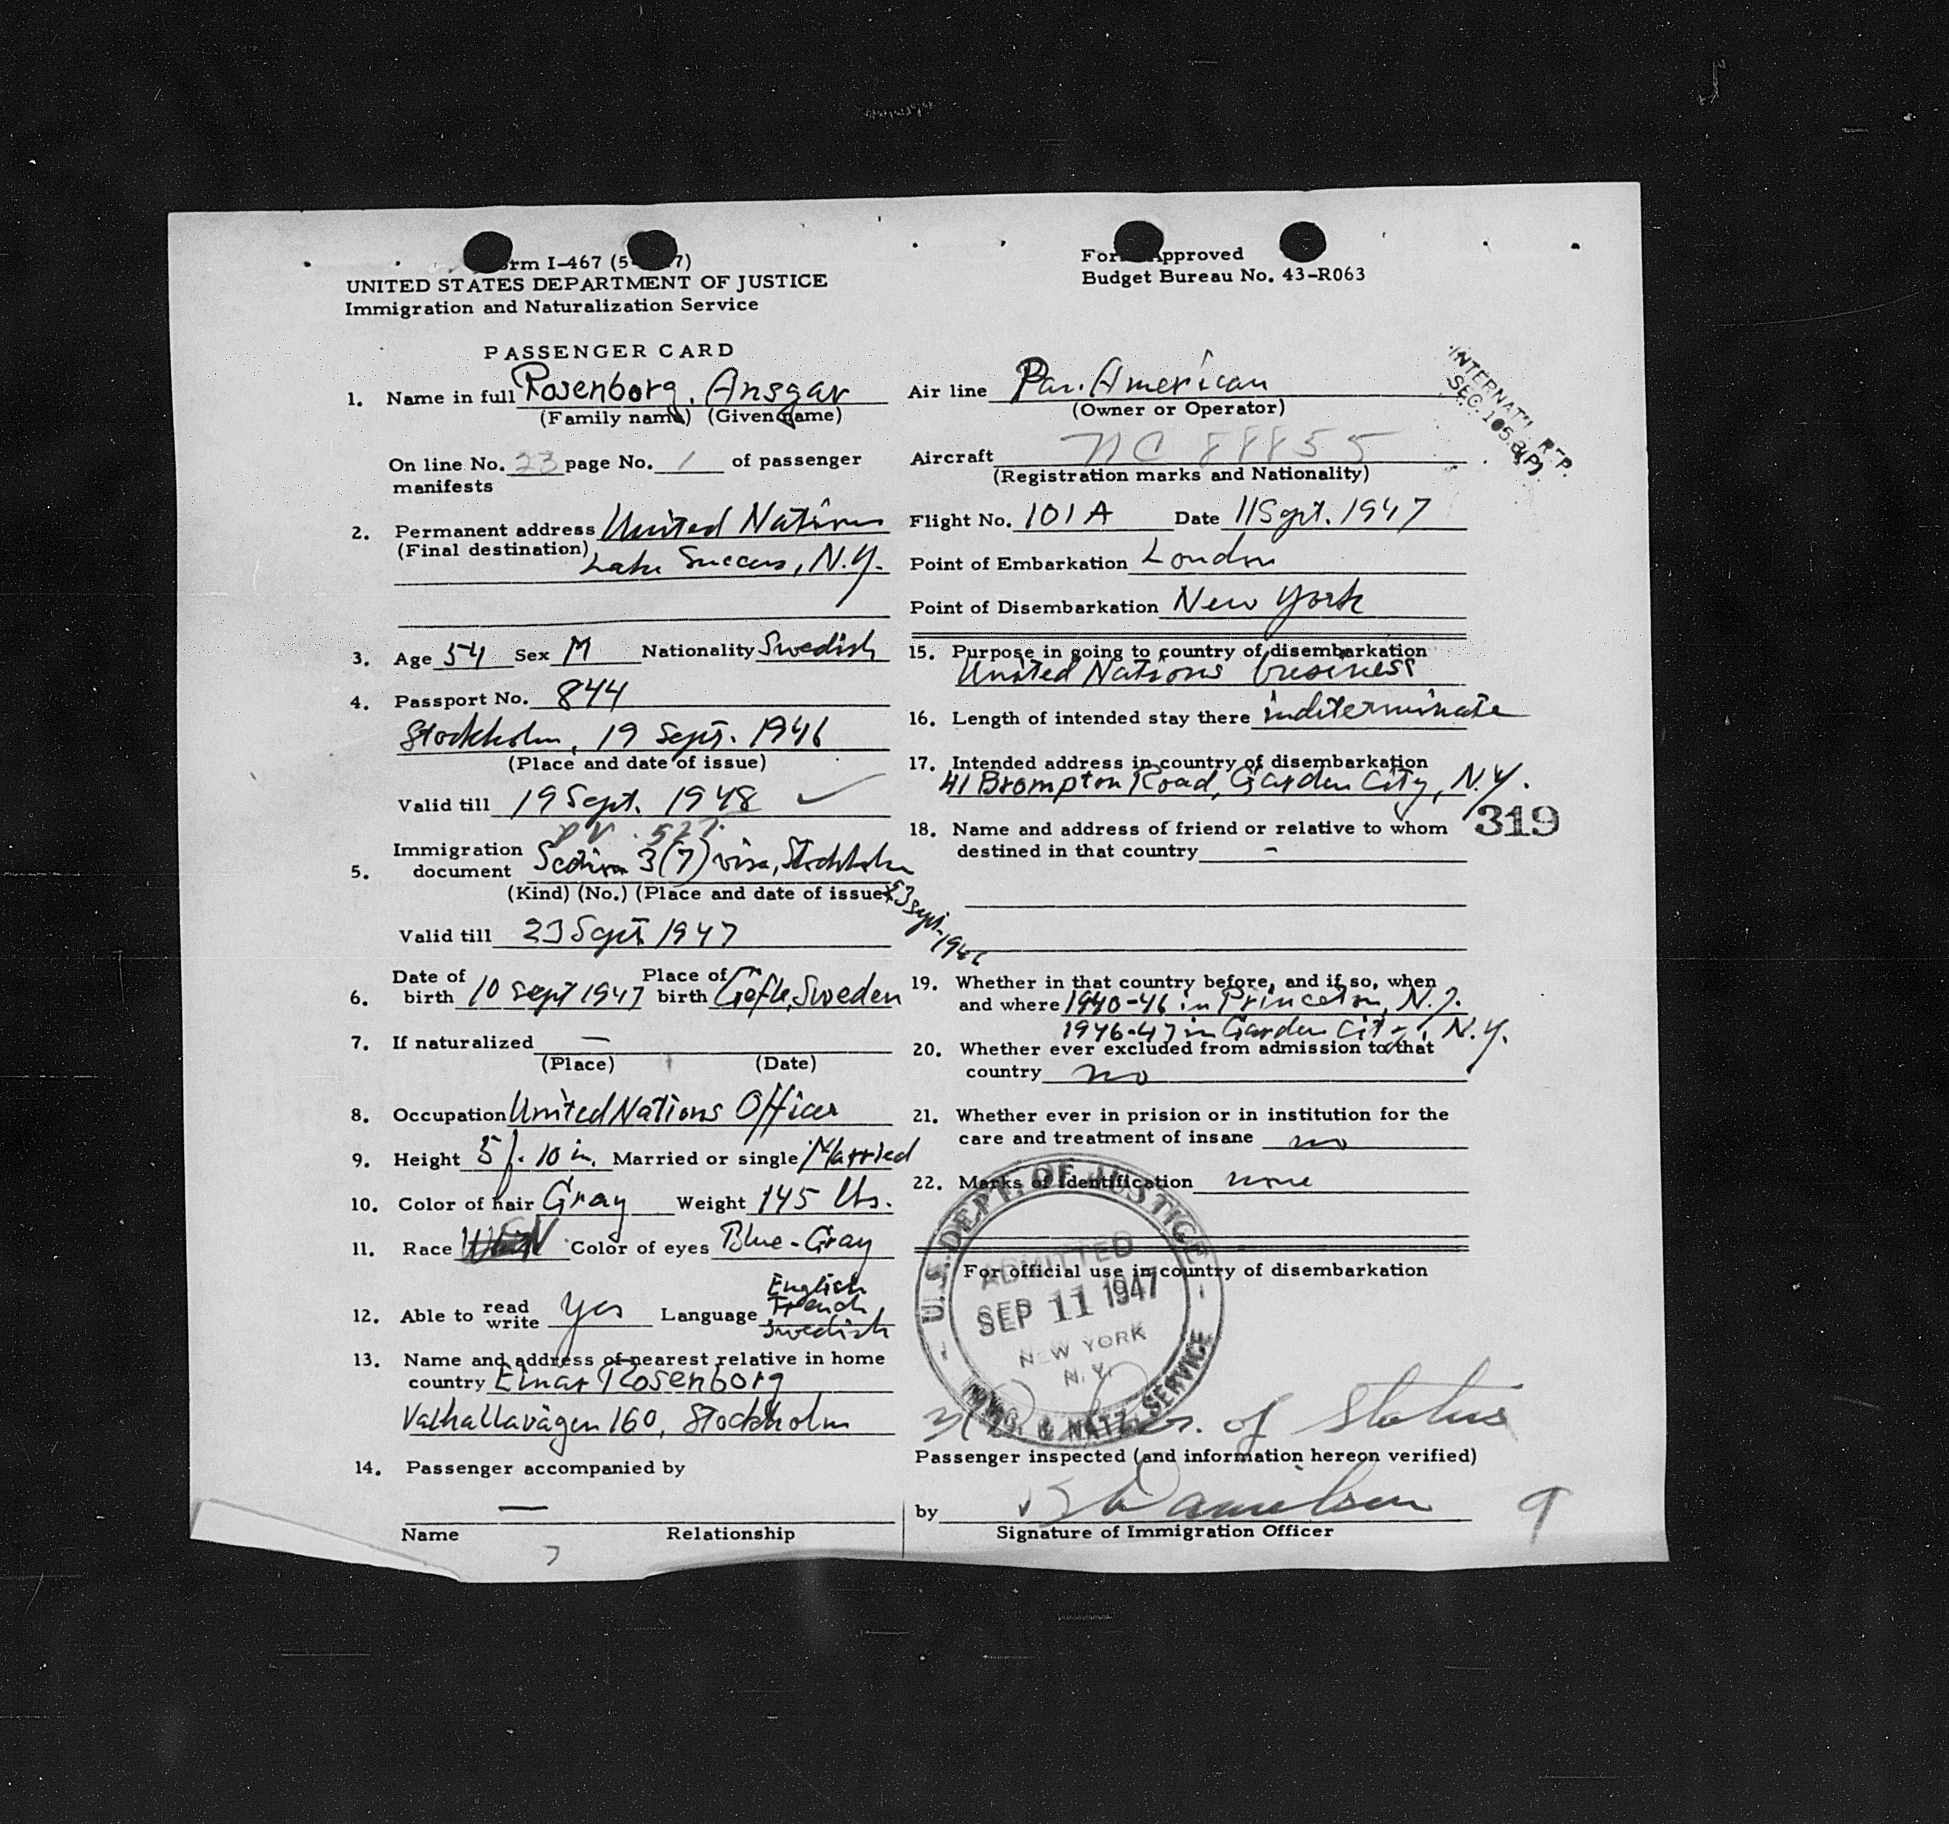 Form I-467 (5- 7)
UNITED STATES DEPARTMENT OF JUSTICE
Immigration and Naturalization Service
PASSENGER CARD
1. Name in full Rosenborg, Ansgar
(Family name) (Given name)
On line No. 23 page No. 1 of passenger
manifests
2. Permanent address United Nations
(Final destination) Lake Success, N.Y.
3. Age 54 Sex M Nationality Swedish
4. Passport No. 844
Stockholm, 19 Sept. 1946
(Place and date of issue)
Valid till 19 Sept. 1948 ✓
PV. 527.
5. Immigration document Section 3(7) visa, Stockholm
(Kind) (No.) (Place and date of issue) 23 sept. 1946
Valid till 23 Sept 1947
6. Date of birth 10 sept 1947 Place of birth Gefle, Sweden
7. If naturalized —
(Place) (Date)
8. Occupation United Nations Officer
9. Height 5 f. 10 in. Married or single Married
10. Color of hair Gray Weight 145 lbs.
11. Race Color of eyes Blue-Gray
12. Able to read write yes Language English French Swedish
13. Name and address of nearest relative in home
country Einar Rosenborg
Valhallavägen 160, Stockholm
14. Passenger accompanied by
—
Name Relationship
Form Approved
Budget Bureau No. 43-R063
INTERNAT'L REP.
SEC. 105.3(P)
Air line Pan. American
(Owner or Operator)
Aircraft NC 88855
(Registration marks and Nationality)
Flight No. 101A Date 11 Sept. 1947
Point of Embarkation London
Point of Disembarkation New York
15. Purpose in going to country of disembarkation
United Nations business
16. Length of intended stay there indeterminate
17. Intended address in country of disembarkation
41 Brompton Road, Garden City, N.Y.
319
18. Name and address of friend or relative to whom
destined in that country -
19. Whether in that country before, and if so, when
and where 1940-46 in Princeton, N.J.
1946-47 in Garden City, N.Y.
20. Whether ever excluded from admission to that
country no
21. Whether ever in prision or in institution for the
care and treatment of insane no
22. Marks of Identification none
For official use in country of disembarkation
U.S. DEPT. OF JUSTICE
ADMITTED
SEP 11 1947
NEW YORK
N.Y.
IMMG. & NATZ. SERVICE
of Status
Passenger inspected (and information hereon verified)
by Danielsen
Signature of Immigration Officer
9